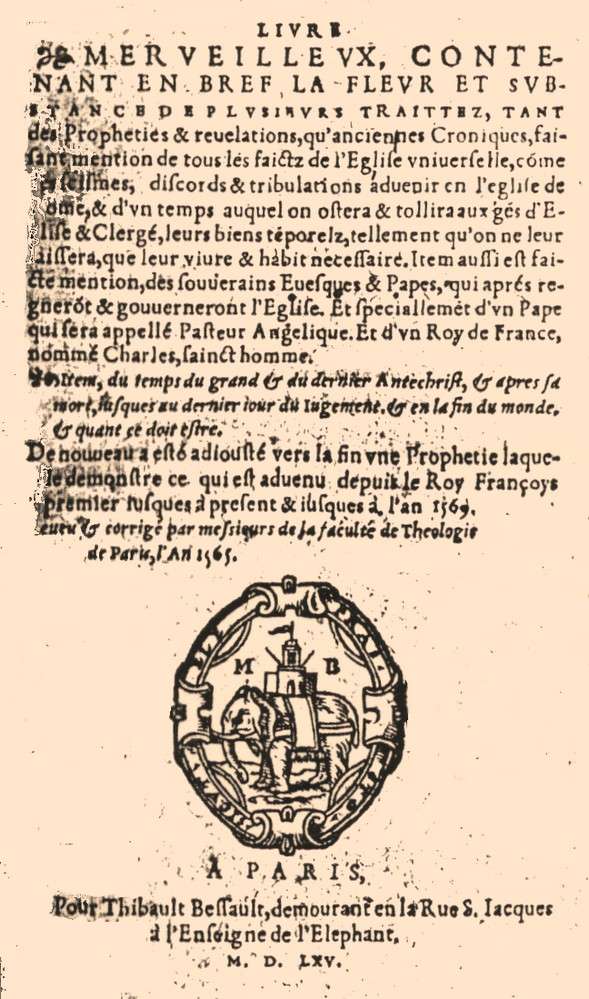 LIVRE
MERVEILLEVX, CONTE-
NANT EN BREF LA FLEVR ET SVB-
STANCE DE PLVSIEVRS TRAITTEZ, TANT
des Propheties & reuelations, qu'anciennes Croniques, fai-
sant mention de tous les faictz de l'Eglise vniuerselle, cõme
scismes, discords & tribulations aduenir en l'eglise de
ome, & d'vn temps auquel on ostera & tollira aux gẽs d'E-
lise & Clergé, leurs biens tẽporelz, tellement qu'on ne leur
aissera, que leur viure & habit necessaire. Item aussi est fai-
cte mention, des souuerains Euesques & Papes, qui aprés re-
gnerõt & gouuerneront l'Eglise. Et speciallemẽt d'vn Pape
qui sera appellé Pasteur Angelique. Et d'vn Roy de France,
nommé Charles, sainct homme.
Item, du temps du grand & du dernier Antechrist, & apres sa
mort, iusques au dernier iour du Iugement. & en la fin du monde,
& quant ce doit estre.
De nouueau a esté adiousté vers la fin vne Prophetie laque-
le demonstre ce qui est aduenu depuis le Roy Françoys
premier iusques à present & iusques à l'an 1569.
eueu & corrigé par messieurs de la faculté de Theologie
de Paris, l'An 1565.
M B
A PARIS,
Pour Thibault Bessault, demourant en la Rue S. Iacques
à l'Enseigne de l'Elephant.
M. D. LXV.